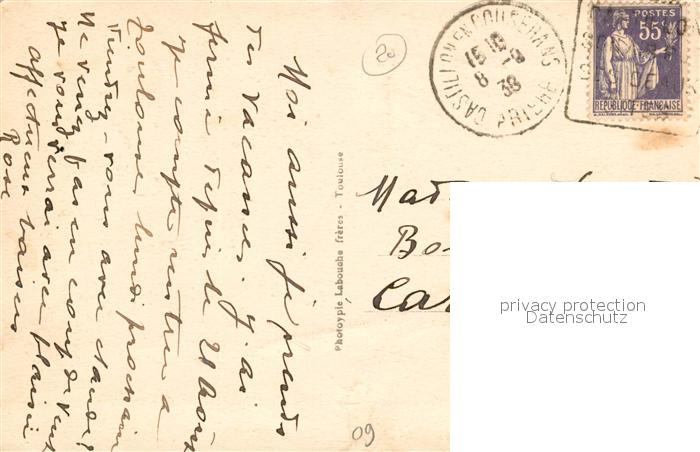 Moi aussi je prends
des vacances. J'ai
fermé depuis le 28 Août
Je compte rentrer à
Toulouse lundi prochain
Viendrez-vous avec Claude?
Ne venez pas en coup de vent
je vous verrai avec plaisir
affectueux baisers
Rose
Phototypie Labouche frères - Toulouse
20
CASTILLON EN COUSERANS
15 10
8 - 9
38
ARIEGE
POSTES
55c
REPUBLIQUE-FRANÇAISE
Mad
Bo
Ca
privacy protection
Datenschutz
09